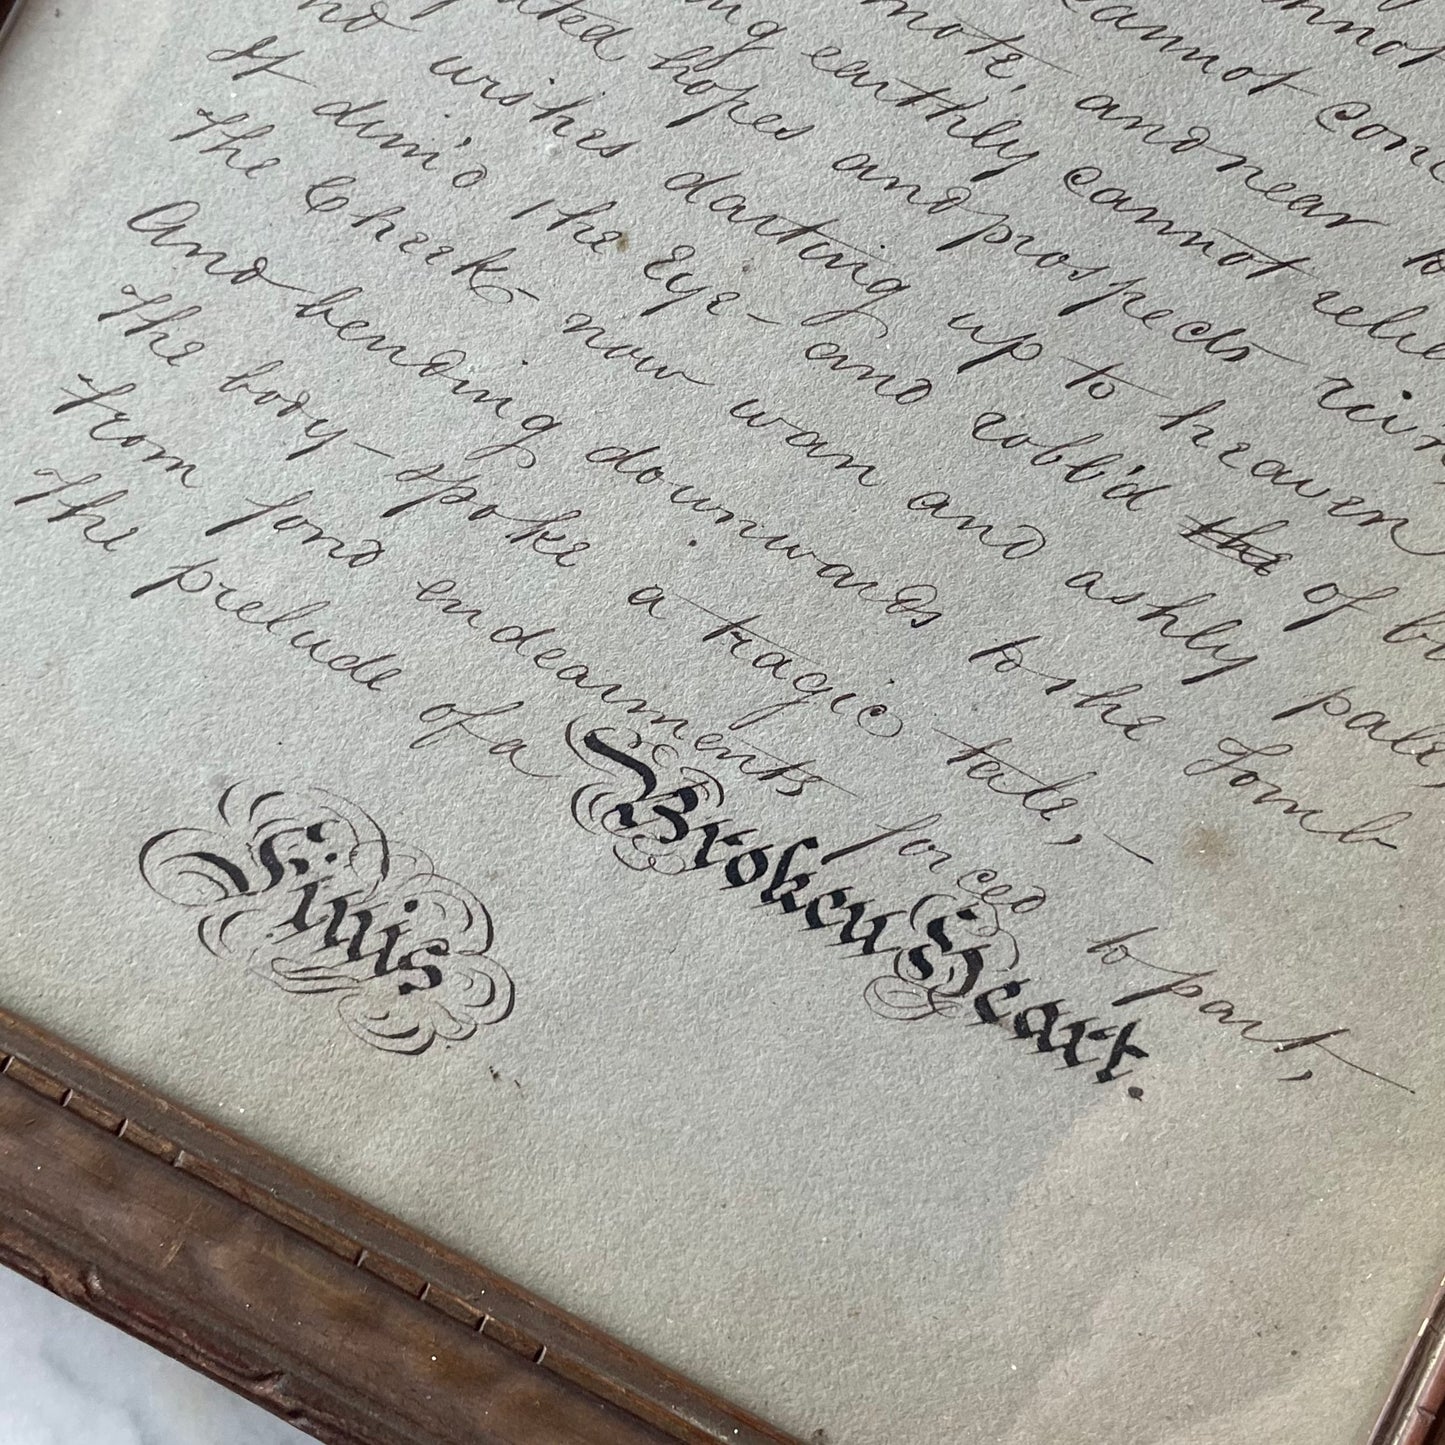 cannot conc
mote, and near to
earthly cannot relie
hopes and prospects
wishes darting up to heaven
It dim'd the Eye- and robb'd the of
The Cheek- now wan and ashly pale,
And bending downwards to the Tomb
The body- spoke a tragic tale,-
From fond endearments forced to part,
The prelude of a Broken Heart.
Finis